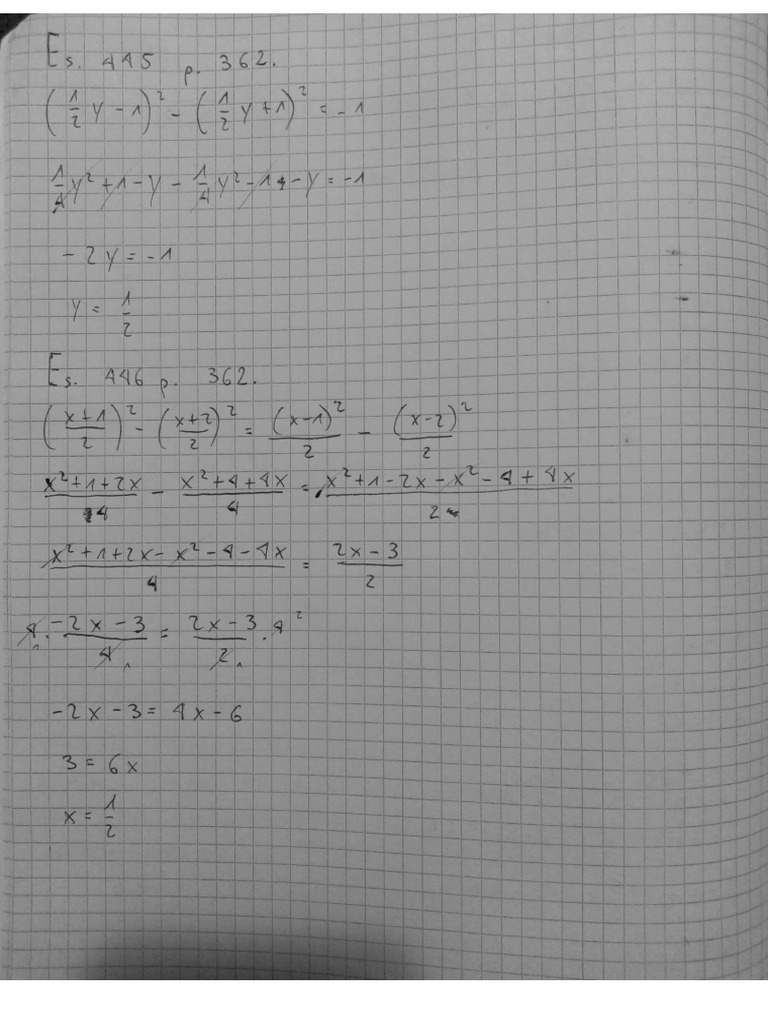 Es. 445 p. 362.
(1/2 y - 1)² - (1/2 y + 1)² = -1
1/4 y² + 1 - y - 1/4 y² - 1 - y = -1
-2y = -1
y = 1/2
Es. 446 p. 362.
((x+1)/2)² - ((x+2)/2)² = (x-1)²/2 - (x-2)²/2
(x²+1+2x)/4 - (x²+4+4x)/4 = (x²+1-2x-x²-4+4x)/2
(x²+1+2x-x²-4-4x)/4 = (2x-3)/2
4 · (-2x-3)/4 = (2x-3)/2 · 4 2
-2x-3 = 4x-6
3 = 6x
x = 1/2